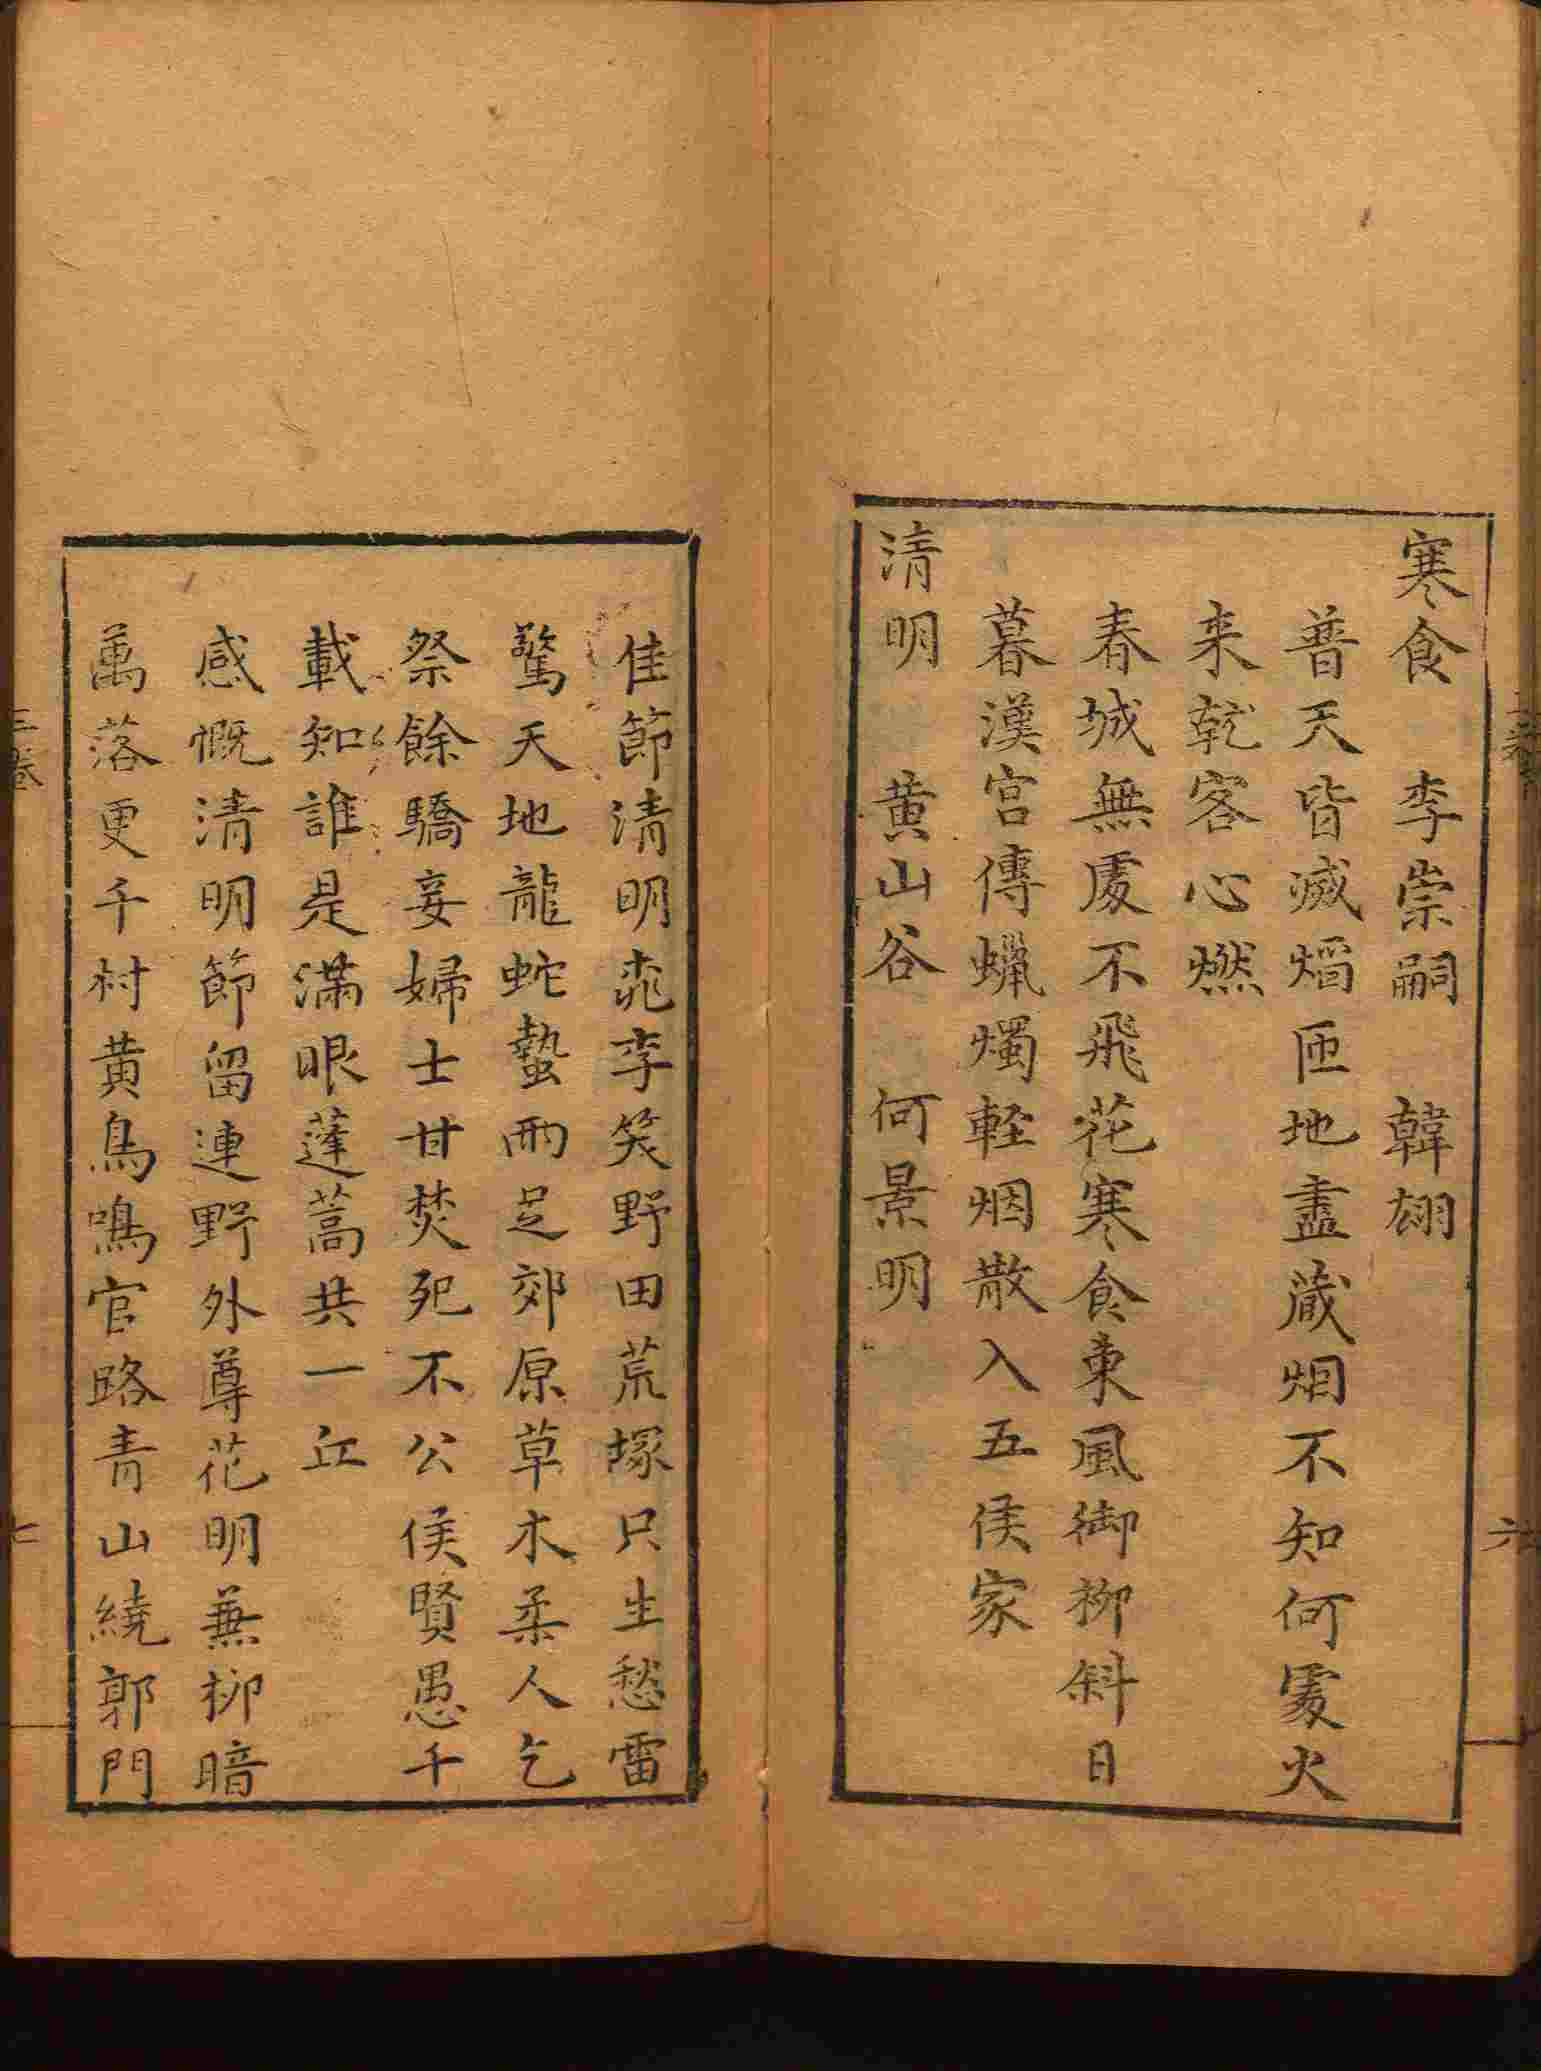 寒食　李崇嗣　韓翃
普天皆滅熖匝地盡蔵烟不知何處火
来就客心燃
春城無處不飛花寒食東風御栁斜日
暮漢宫傳蠟燭軽烟散入五侯家
清明　黄山谷　何景明
佳節清明桃李笑野田荒塚只生愁雷
驚天地龍蛇蟄雨足郊原草木柔人乞
祭餘驕妾婦士甘焚死不公侯賢愚千
載知誰是滿眼蓬蒿共一丘
感慨清明節留連野外尊花明蕪栁暗
萬落更千村黄鳥鳴官路青山繞郭門
六
三卷
七